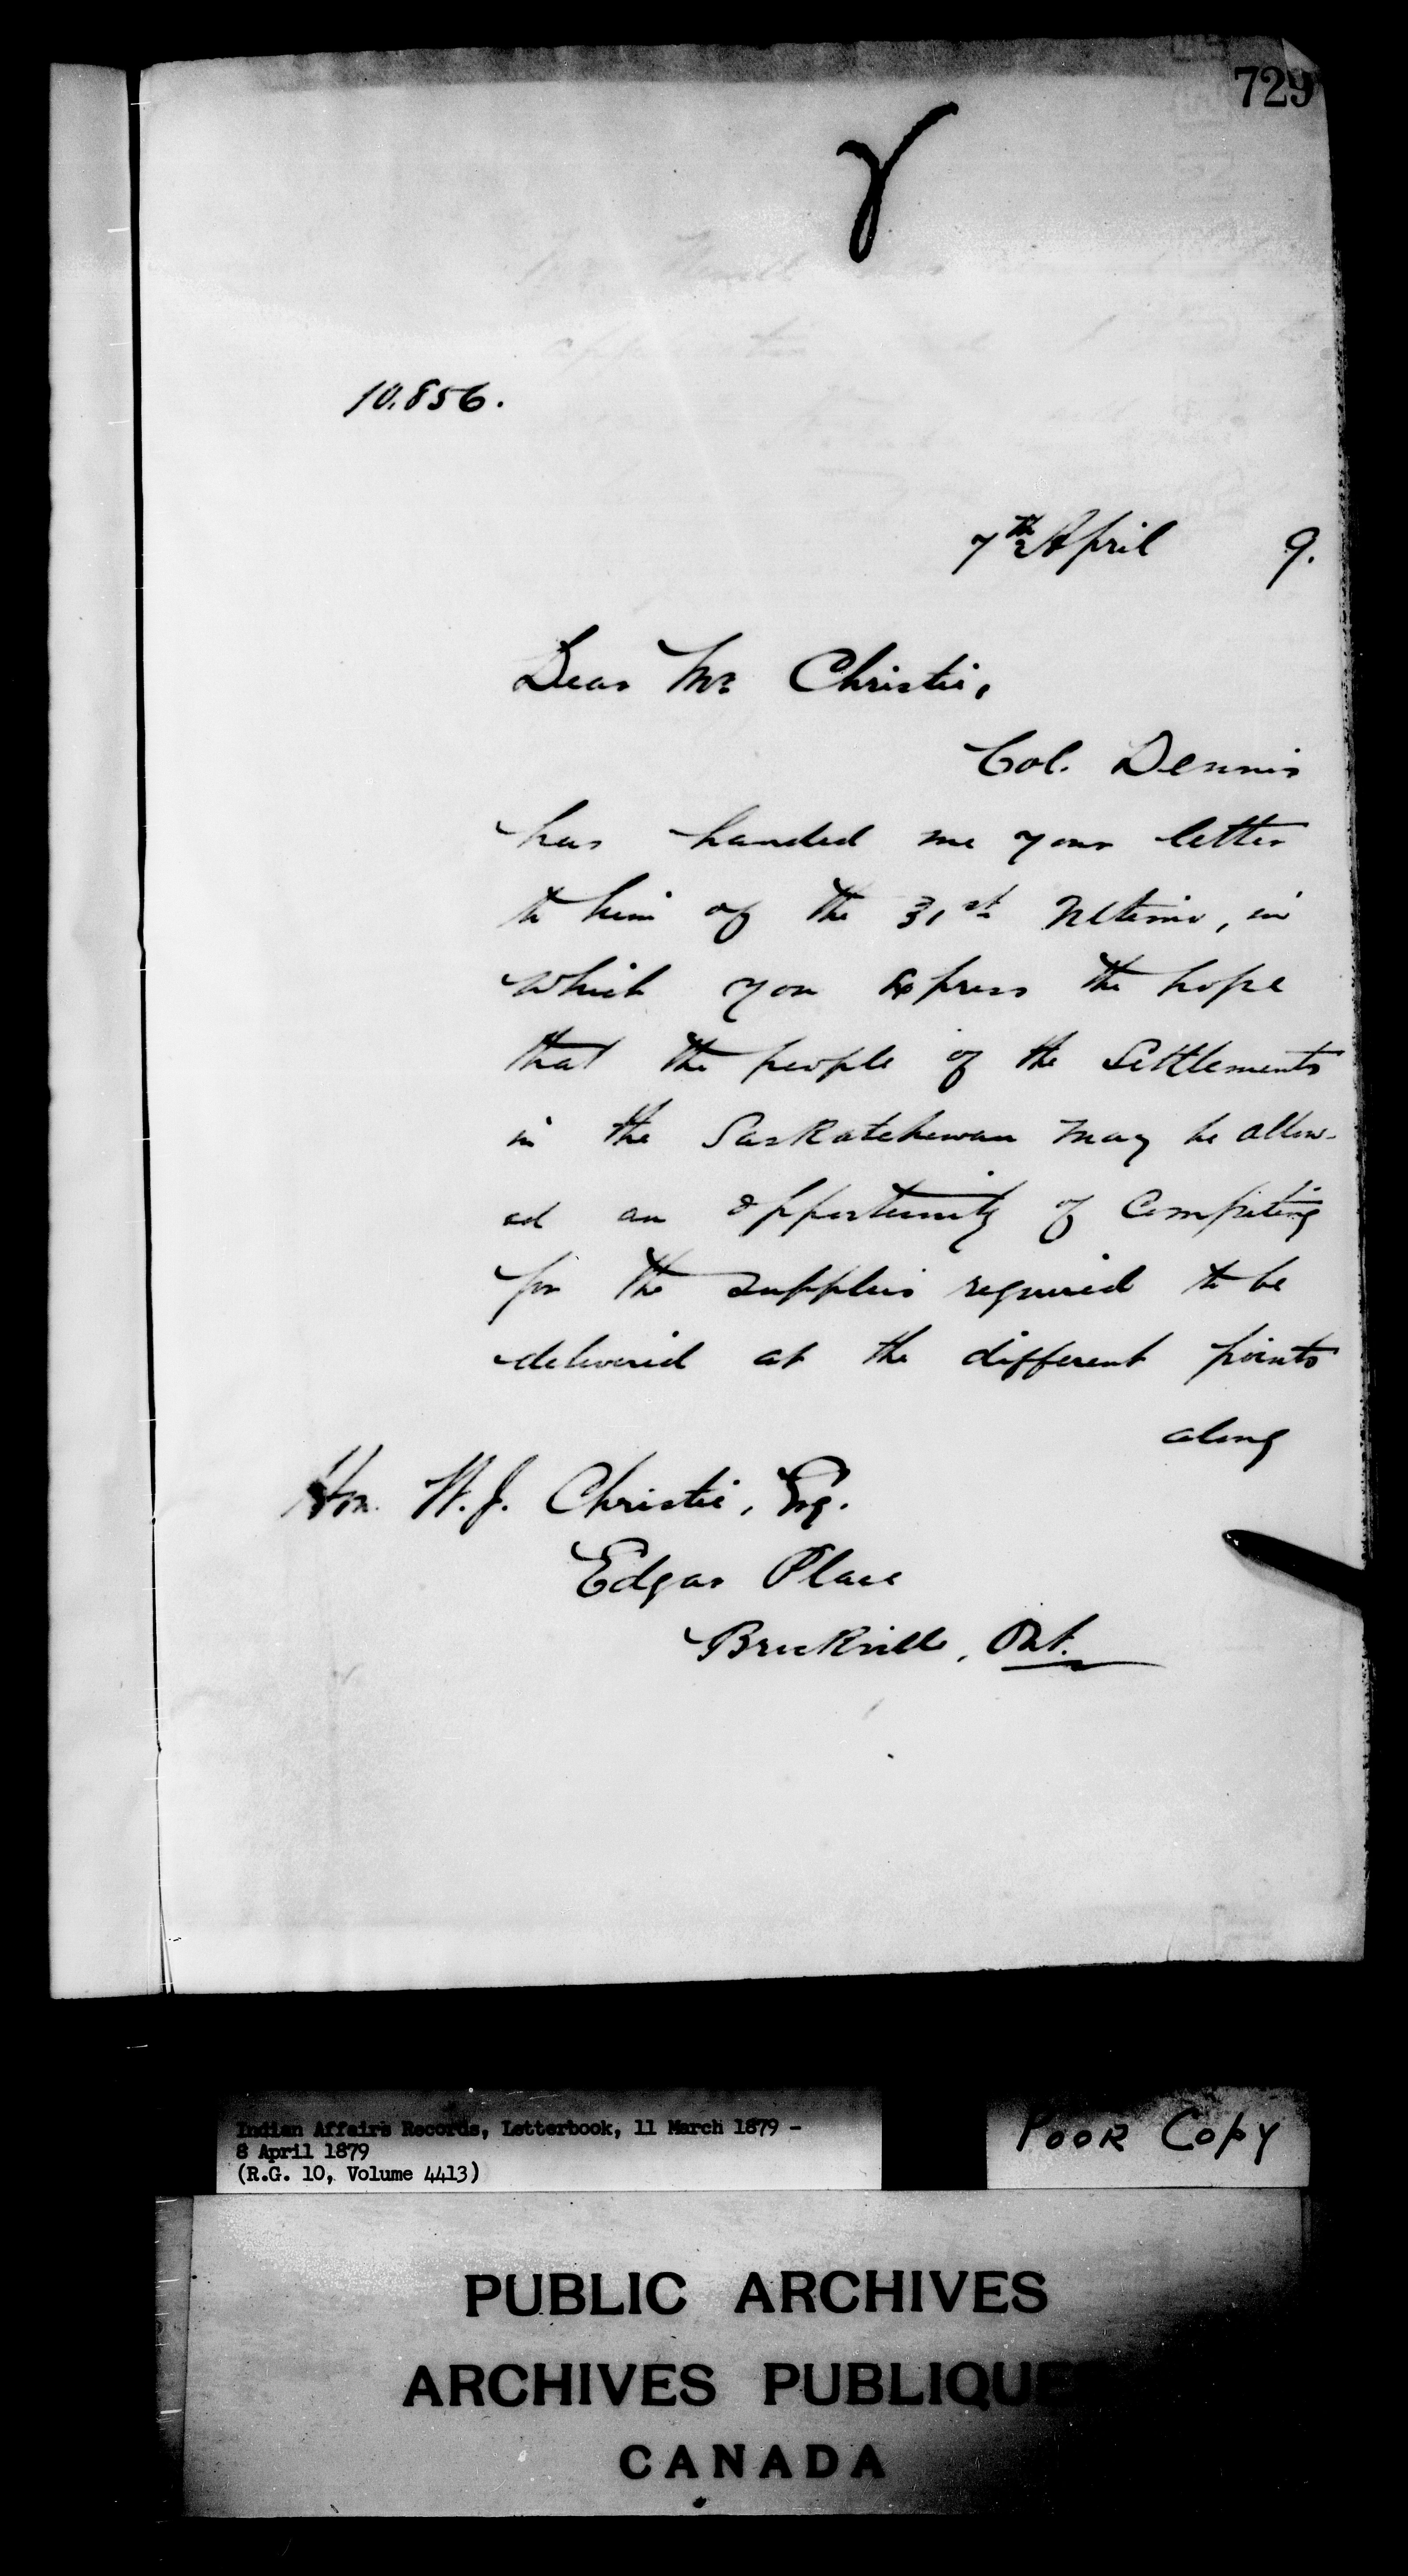 729
10.856.
7th April 9.
Dear Mr Christie,
Col. Dennis
has handed me your letter
to him of the 31st Ultimo, in
which you express the hope
that the people of the Settlements
in the Saskatchewan may be allow-
ed an opportunity of Competing
for the supplies required to be
delivered at the different points
along
Hon. W. J. Christie, Esq.
Edgar Place
Brockville, Ont.
Indian Affairs Records, Letterbook, 11 March 1879 -
8 April 1879
(R.G. 10, Volume 4413)
POOR COPY
PUBLIC ARCHIVES
ARCHIVES PUBLIQUES
CANADA